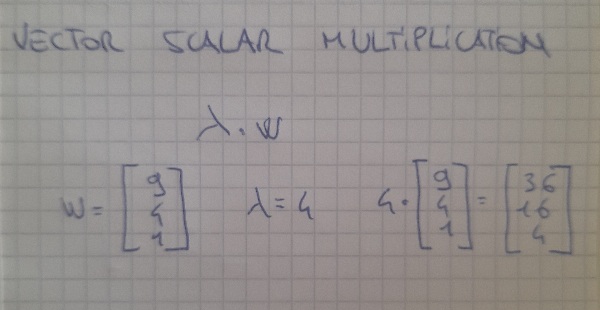 VECTOR SCALAR MULTIPLICATION
λ · w
w = [9 4 1] λ = 4 4 · [9 4 1] = [36 16 4]